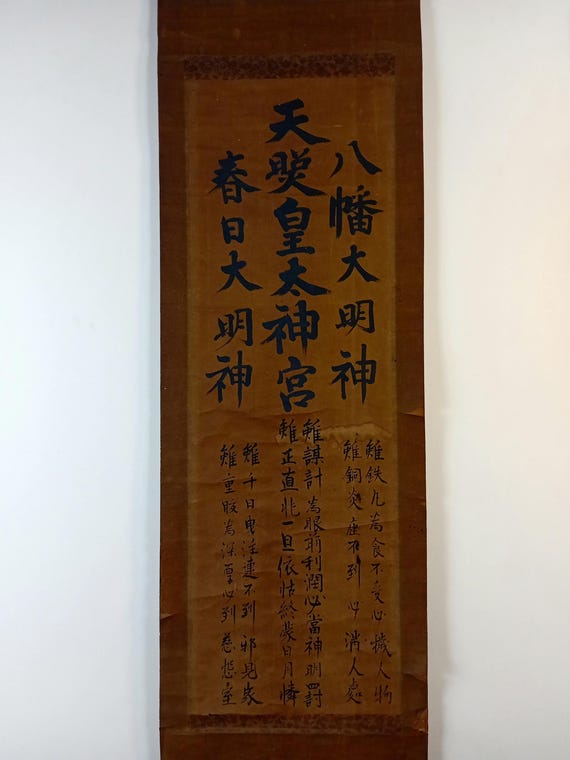 八幡大明神
天照皇太神宮
春日大明神
雖鉄丸為食不受心穢人物
雖銅炎座不到心濁人處
雖謀計為眼前利潤必當神明罰
雖正直非一旦依怙終蒙日月憐
雖千日曳注連不到邪見家
雖重服為深厚必到慈悲室